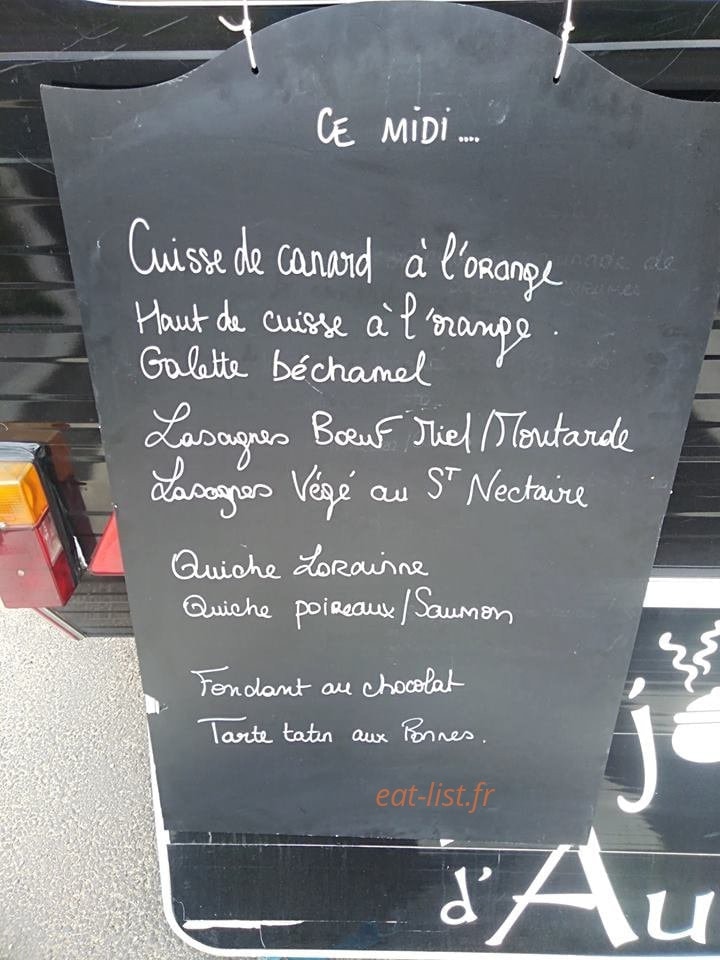 CE MIDI....
Cuisse de canard à l'orange
Haut de cuisse à l'orange.
Galette béchamel
Lasagnes Bœuf Miel/Moutarde
Lasagnes Végé au ST Nectaire
Quiche Lorainne
Quiche poireaux/Saumon
Fondant au chocolat
Tarte tatin aux Pommes.
eat-list.fr
j
d'Au